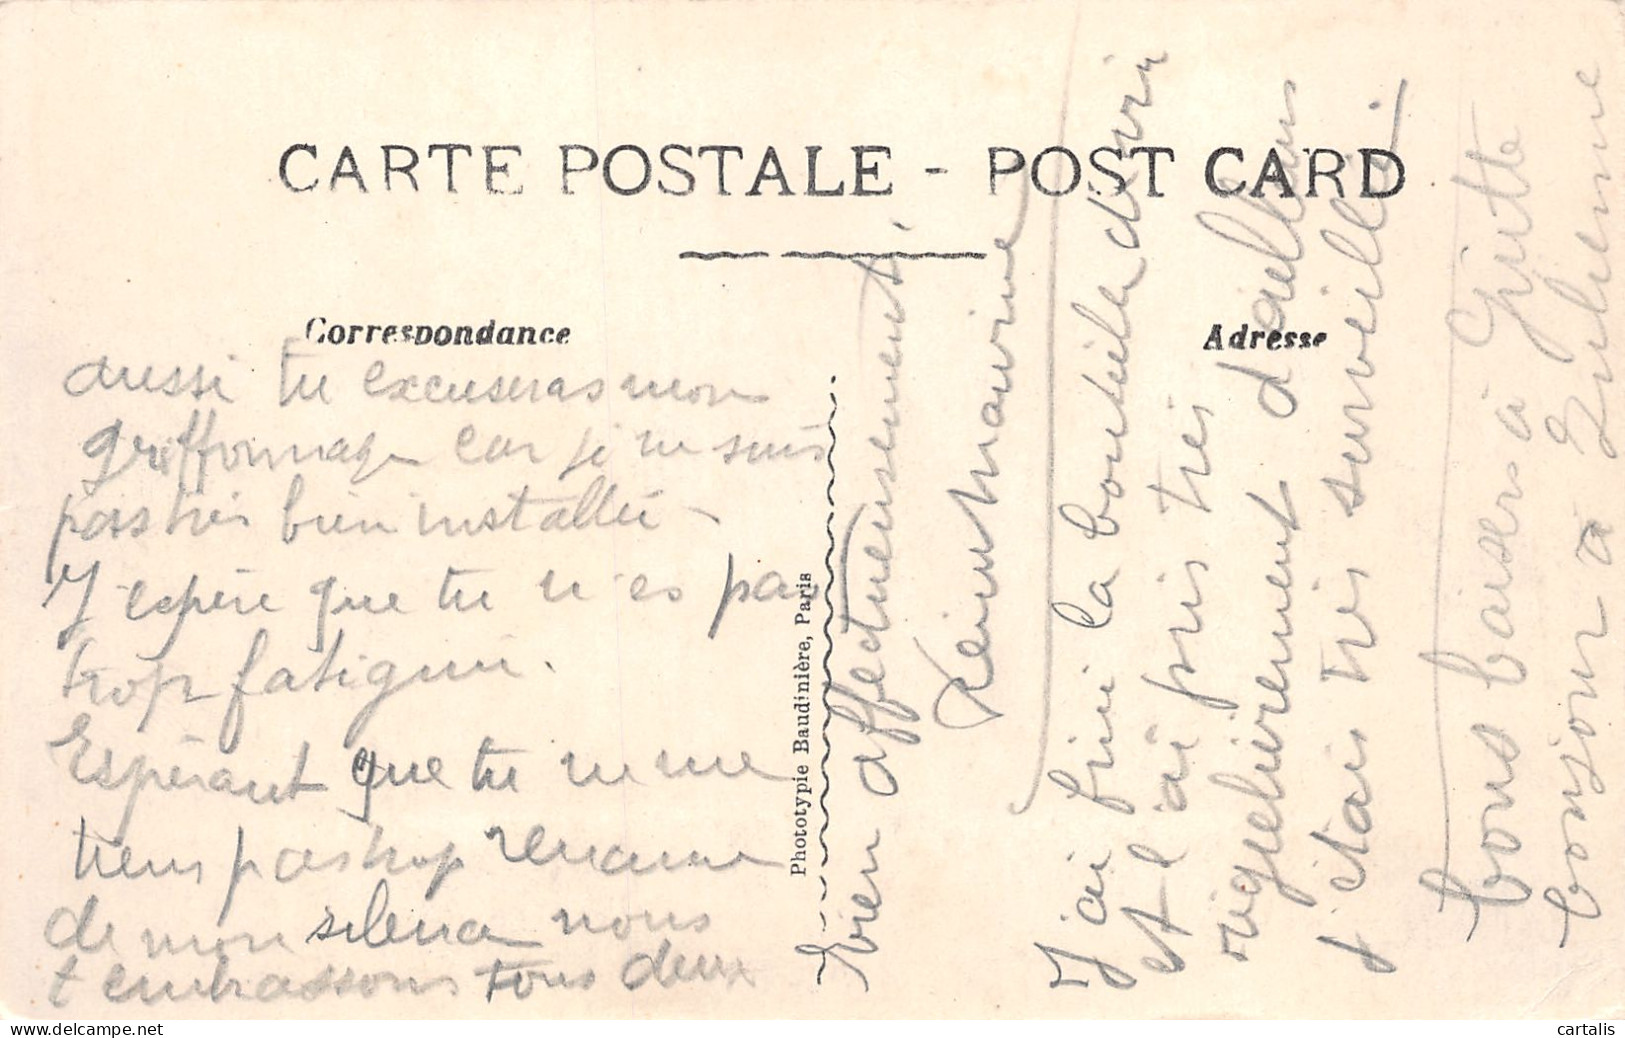 CARTE POSTALE - POST CARD
Correspondance
Adresse
aussi tu excuseras mon
griffonnage car je ne suis
pas très bien installée
J'espère que tu n'es pas
trop fatiguée.
Espérant que tu ne me
tiens pas trop rancune
de mon silence nous
t'embrassons tous deux
bien affectueusement
J'ai fini la bouteille
et l'ai pris très
régulièrement d'ailleurs
j'étais très surveillée.
bons baisers à
bonjour à
Phototypie Baudinière, Paris
cartalis